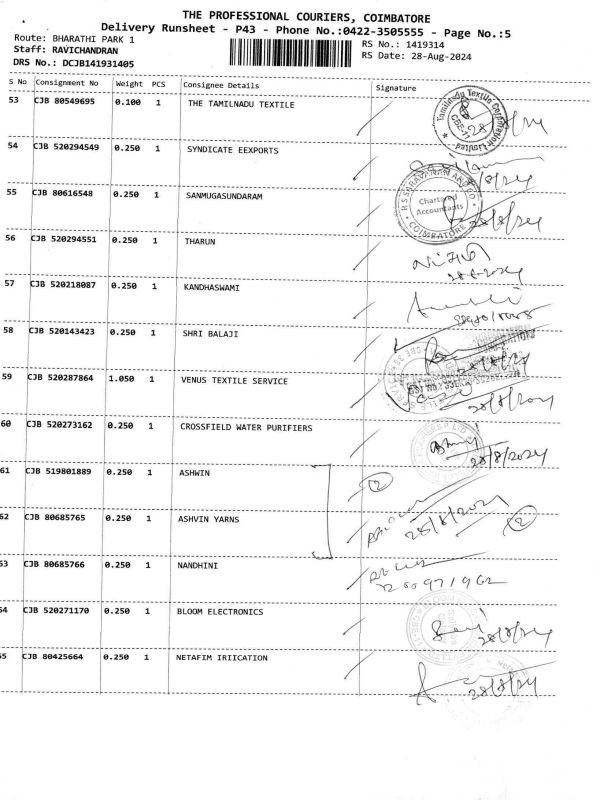 THE PROFESSIONAL COURIERS, COIMBATORE
Delivery Runsheet - P43 - Phone No.:0422-3505555 - Page No.:5
Route: BHARATHI PARK 1
RS No.: 1419314
Staff: RAVICHANDRAN
RS Date: 28-Aug-2024
DRS No.: DCJB141931405
S No Consignment No Weight PCS Consignee Details Signature
53 CJB 80549695 0.100 1 THE TAMILNADU TEXTILE
Tamilnadu Textile Corporation Limited
54 CJB 520294549 0.250 1 SYNDICATE EEXPORTS
55 CJB 80616548 0.250 1 SANMUGASUNDARAM
R.S SARAVANAN AND CO
Chartered
Accountants
COIMBATORE
28/8/24
56 CJB 520294551 0.250 1 THARUN
28-8-2024
57 CJB 520218087 0.250 1 KANDHASWAMI
58 CJB 520143423 0.250 1 SHRI BALAJI
28/8/24
59 CJB 520287864 1.050 1 VENUS TEXTILE SERVICE
28/8/2024
60 CJB 520273162 0.250 1 CROSSFIELD WATER PURIFIERS
28/8/2024
61 CJB 519801889 0.250 1 ASHWIN
2
62 CJB 80685765 0.250 1 ASHVIN YARNS
28/8/2024 2
53 CJB 80685766 0.250 1 NANDHINI
54 CJB 520271170 0.250 1 BLOOM ELECTRONICS
28/8/24
55 CJB 80425664 0.250 1 NETAFIM IRIICATION
28/8/24